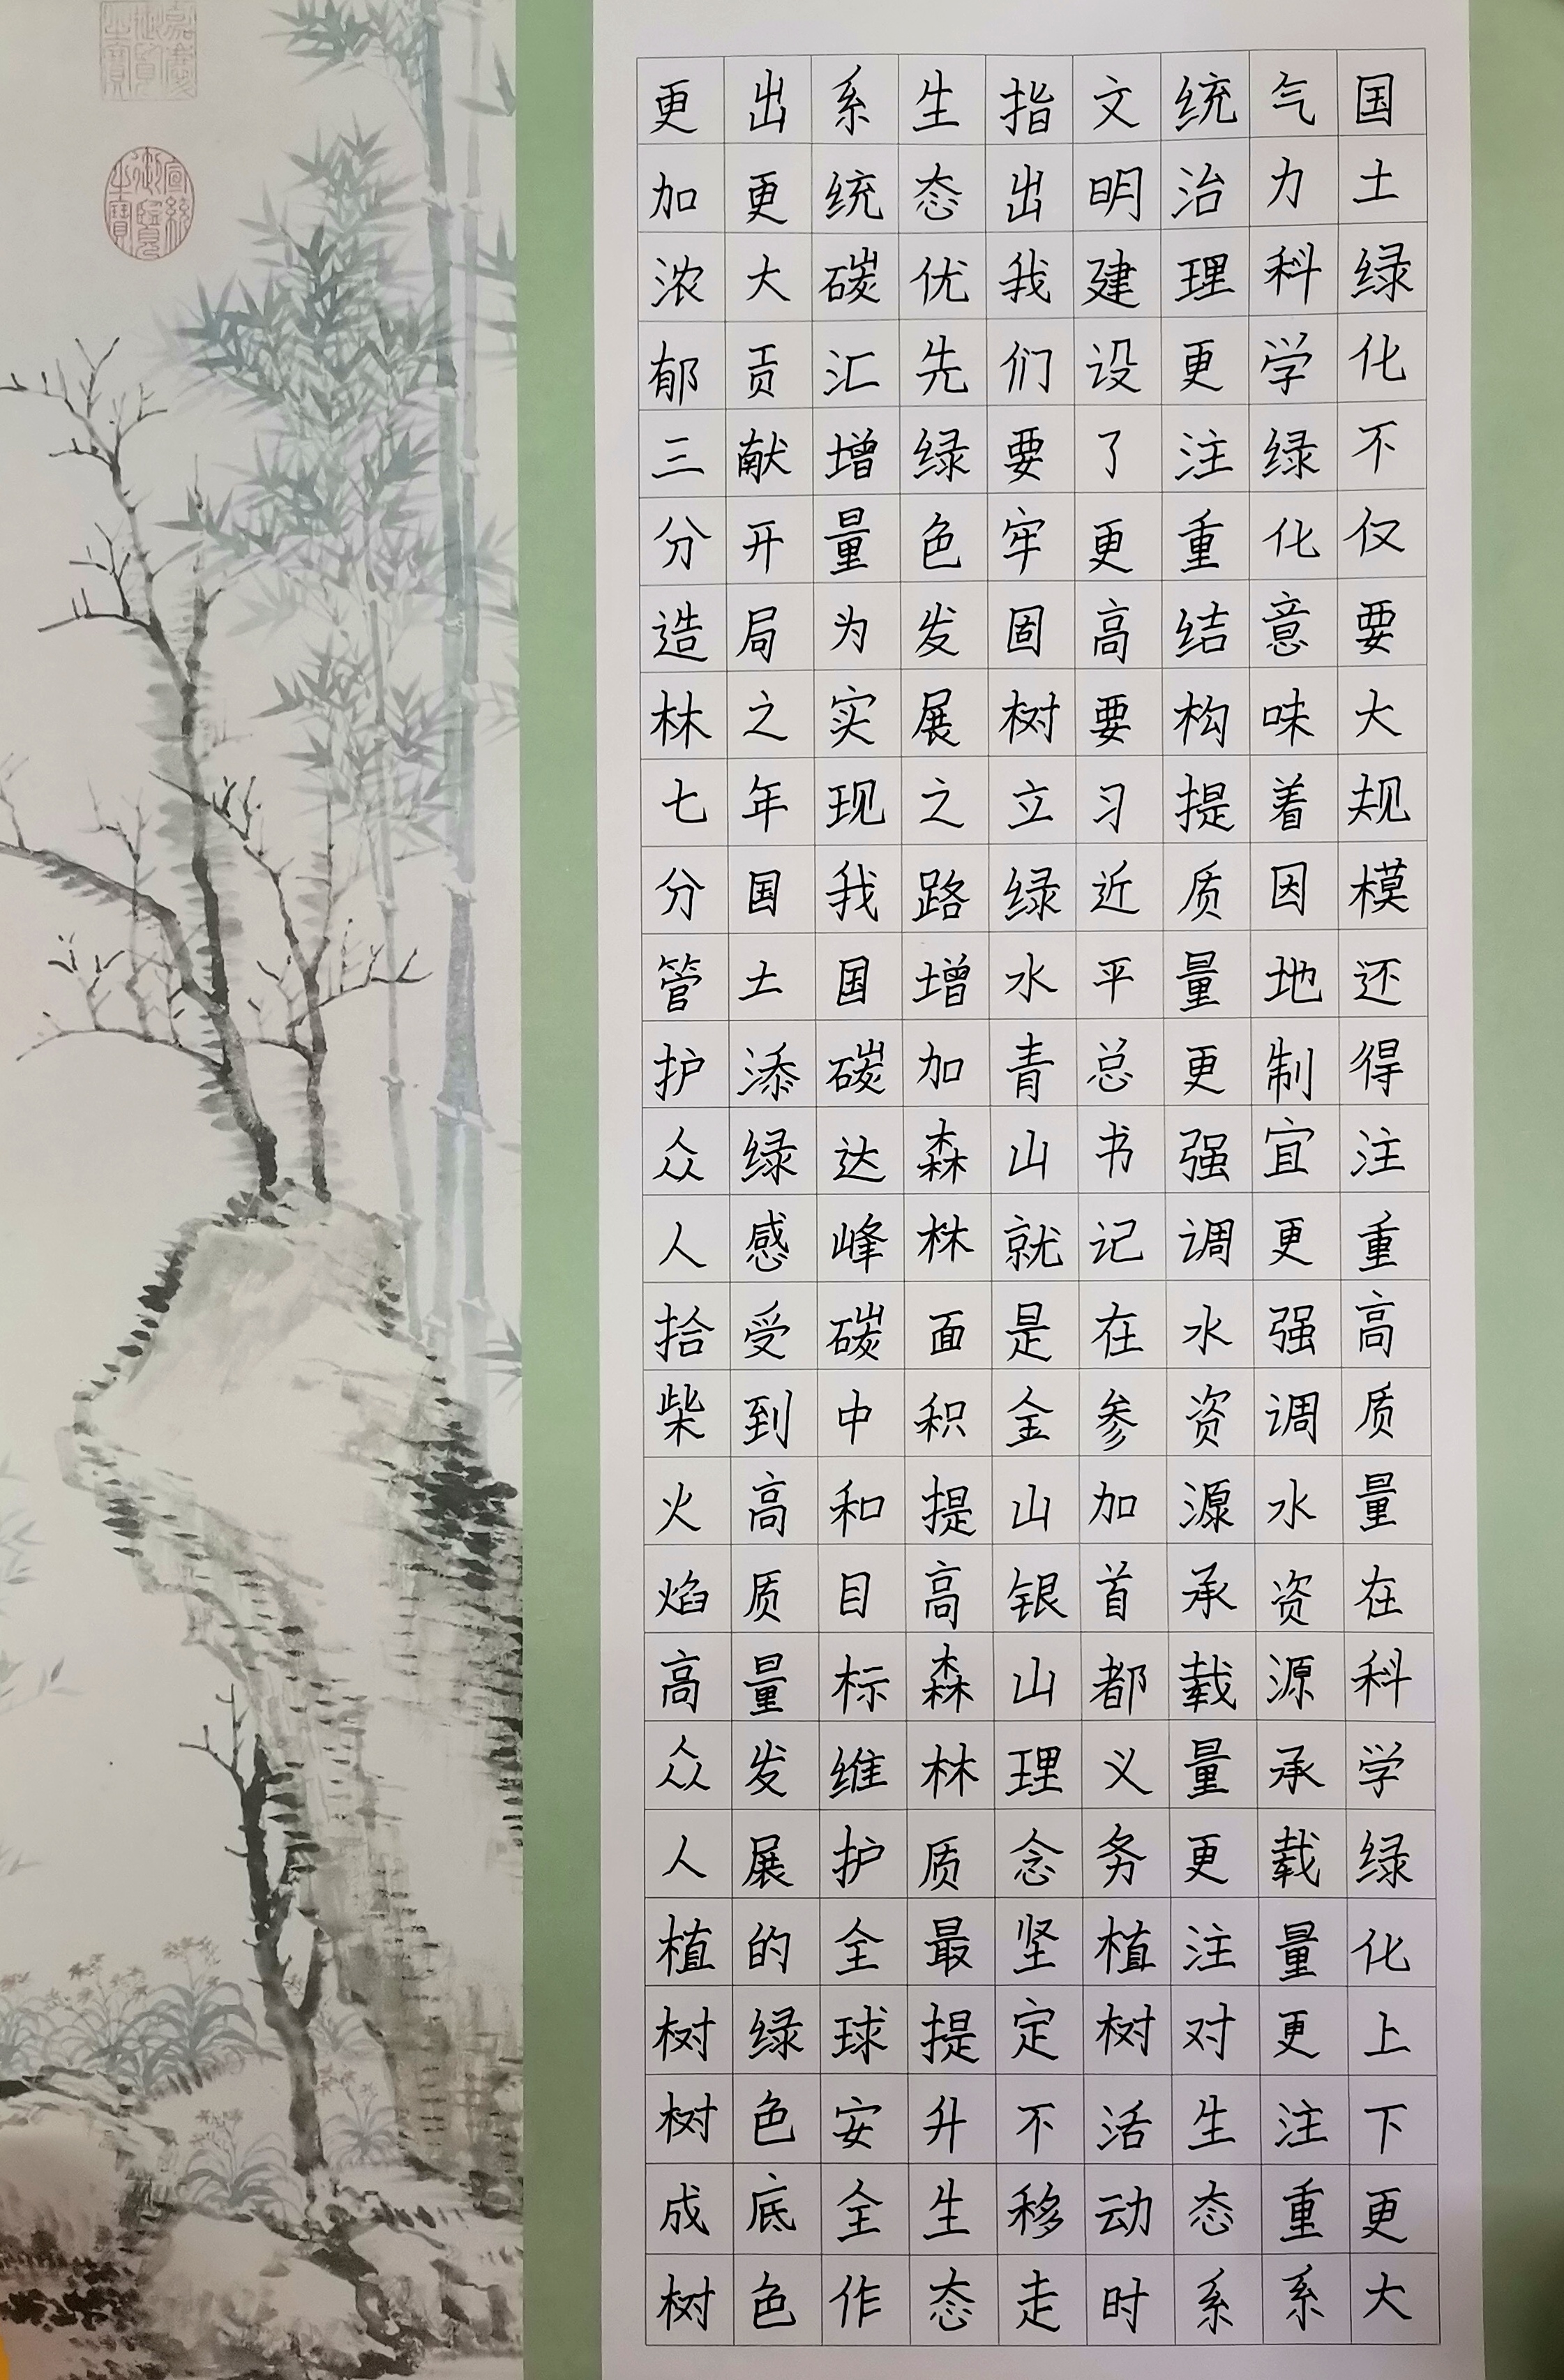 国土绿化不仅要大规模还得注重高质量在科学绿化上下更大
气力科学绿化意味着因地制宜更强调水资源承载量更注重系
统治理更注重结构提质量更强调水资源承载量更注对生态系
文明建设了更高要习近平总书记在参加首都义务植树活动时
指出我们要牢固树立绿水青山就是金山银山理念坚定不移走
生态优先绿色发展之路增加森林面积提高森林质量最提升生态
系统碳汇增量为实现我国碳达峰碳中和目标维护全球安全作
出更大贡献开局之年国土添绿感受到高质量发展的绿色底色
更加浓郁三分造林七分管护众人拾柴火焰高众人植树树成树
嘉慶御覽之寶
宣統御覽之寶